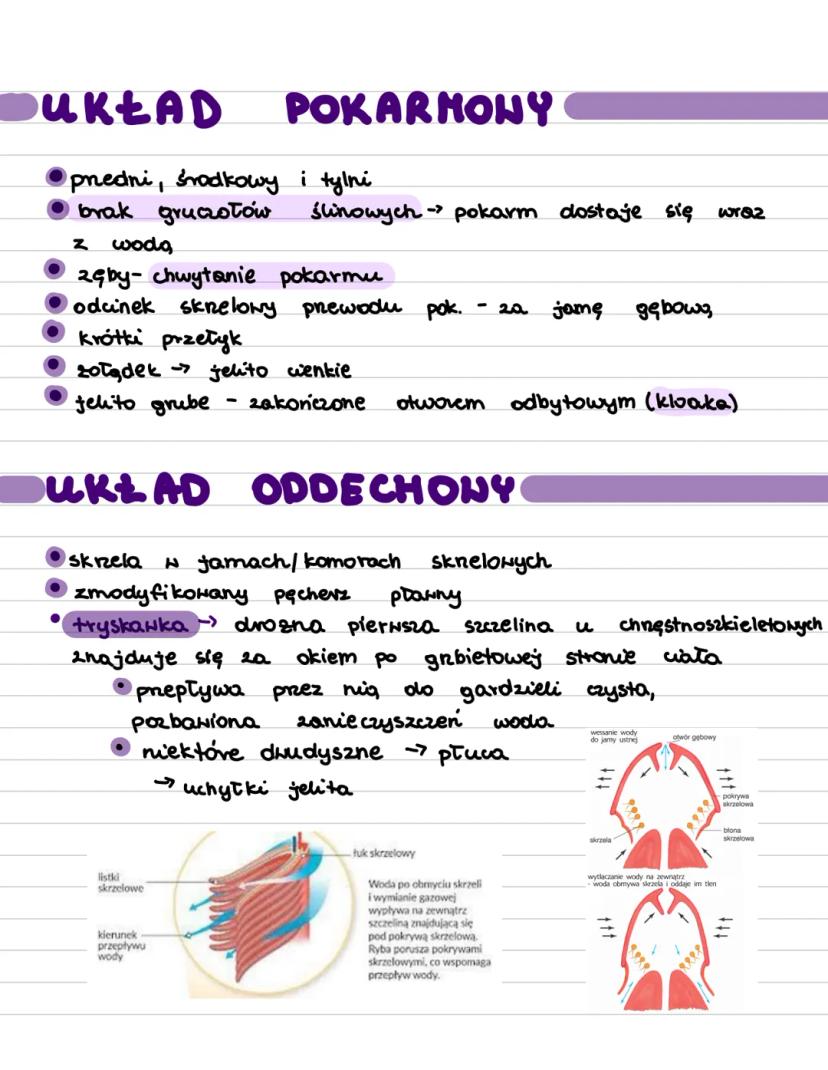 UKŁAD POKARMOWY
przedni, środkowy i tylni
brak gruczołów ślinowych → pokarm dostaje się wraz
z wodą
zęby- chwytanie pokarmu
odcinek skrzelowy przewodu pok. - za jamą gębową
krótki przełyk
żołądek → jelito cienkie
jelito grube - zakończone otworem odbytowym (kloaka)
UKŁAD ODDECHOWY
skrzela w jamach/komorach skrzelowych
zmodyfikowany pęcherz pławny
tryskawka → drożna pierwsza szczelina u chrzęstnoszkieletowych
znajduje się za okiem po grzbietowej stronie ciała
przepływa przez nią do gardzieli czysta,
pozbawiona zanieczyszczeń woda
niektóre dwudyszne → płuca
→ uchyłki jelita
wessanie wody
do jamy ustnej
otwór gębowy
pokrywa
skrzelowa
błona
skrzelowa
skrzela
wytłaczanie wody na zewnątrz
- woda obmywa skrzela i oddaje im tlen
łuk skrzelowy
listki
skrzelowe
kierunek
przepływu
wody
Woda po obmyciu skrzeli
i wymianie gazowej
wypływa na zewnątrz
szczeliną znajdującą się
pod pokrywą skrzelową.
Ryba porusza pokrywami
skrzelowymi, co wspomaga
przepływ wody.